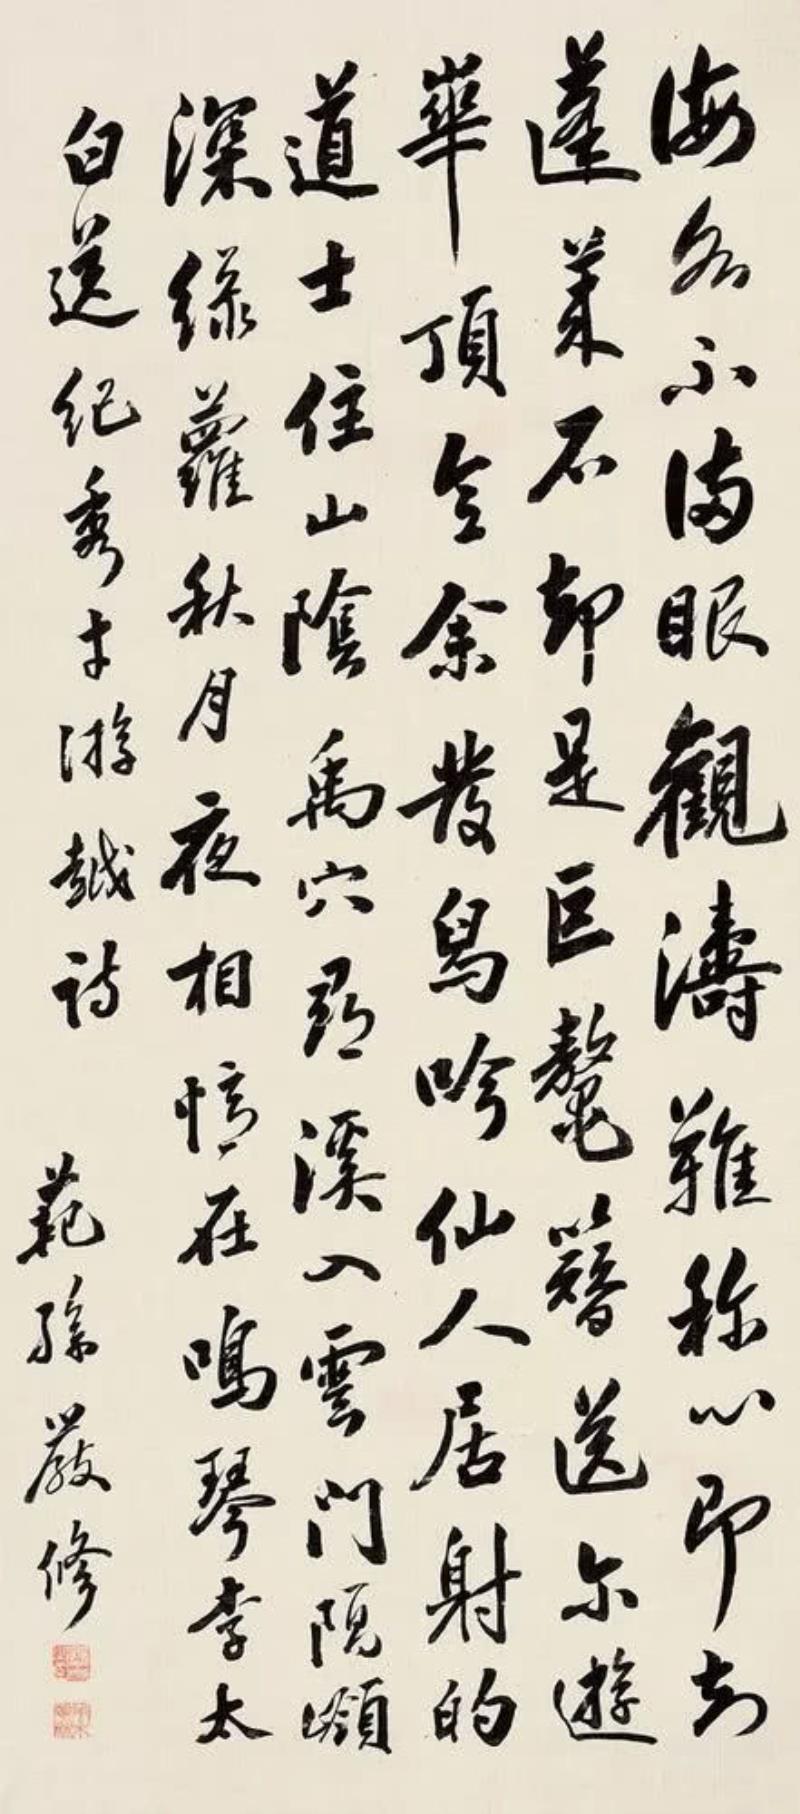 海水不满眼觀濤難称心即知
蓬莱石却是巨鼇簪送尔遊
華頂令余發舄吟仙人居射的
道士住山陰禹穴尋溪入雲門隔嶺
深緑蘿秋月夜相憶在鳴琴李太
白送紀秀才游越詩
範孫嚴修